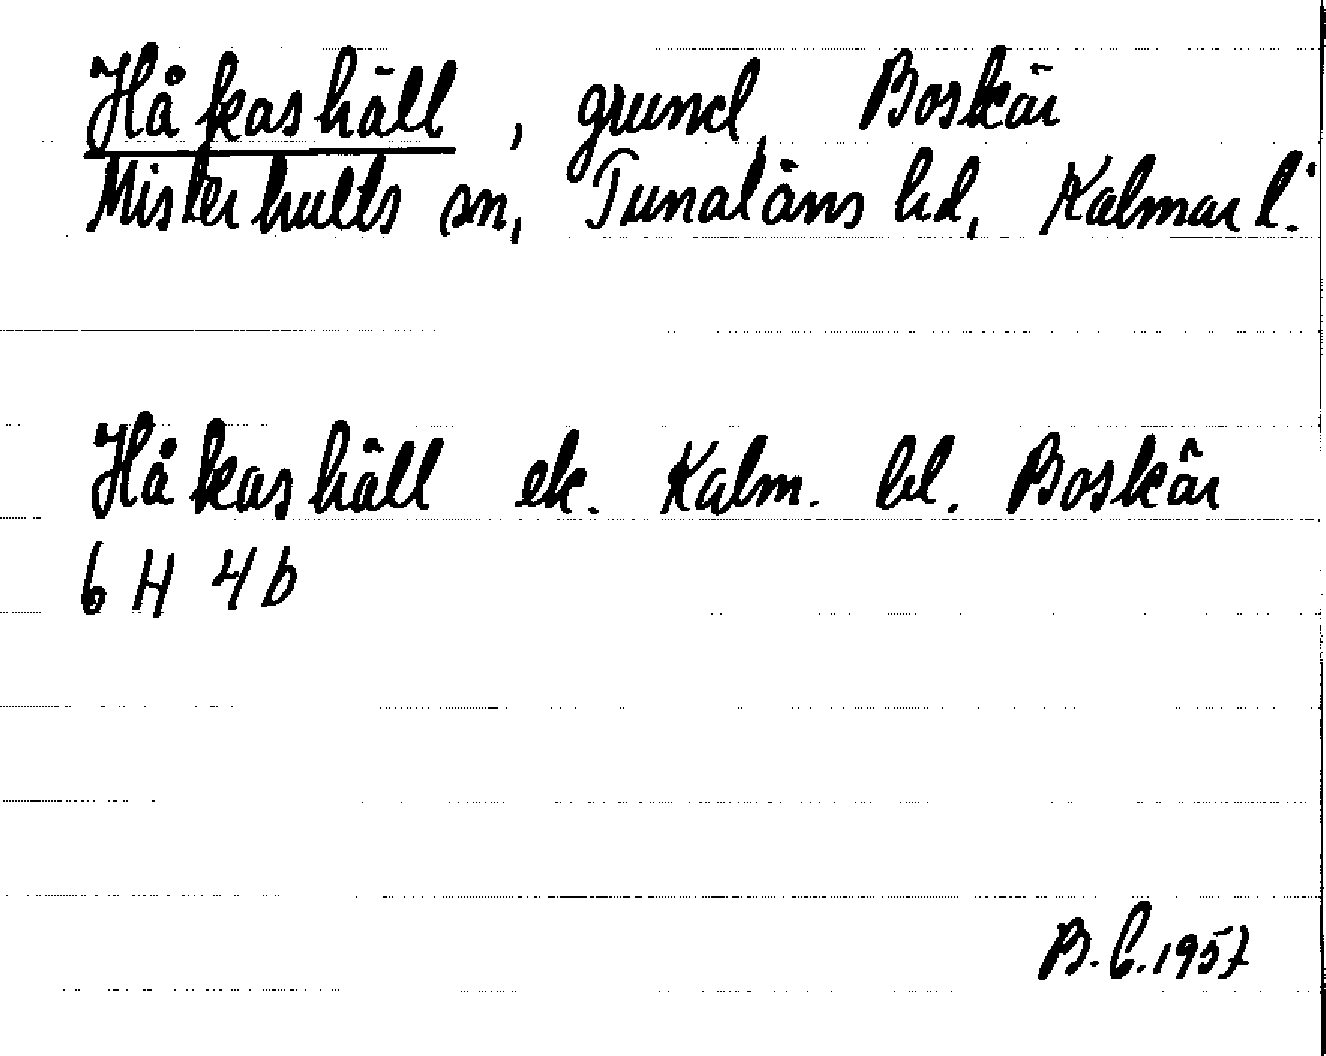 Håkashäll, grund, Boskär
Misterhults sn, Tunaläns hd, Kalmar l.
Håkashäll ek. Kalm. bl. Boskär
6 H 4 b
B.C. 1957